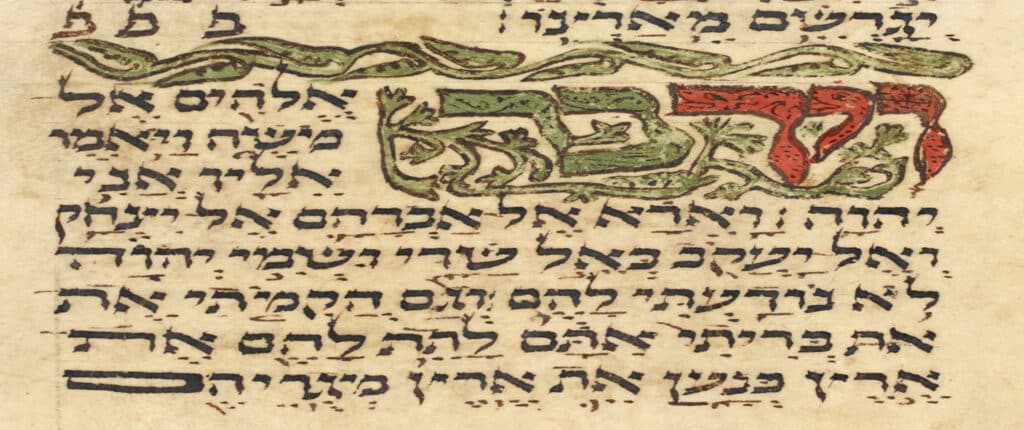 יגרשם מארצו: פ פ פ
וידבר אלהים אל
משה ויאמר
אליו אני
יהוה: וארא אל אברהם אל יצחק
ואל יעקב באל שדי ושמי יהוה
לא נודעתי להם: וגם הקמתי את
את בריתי אתם לתת להם את
ארץ כנען את ארץ מגוריהם